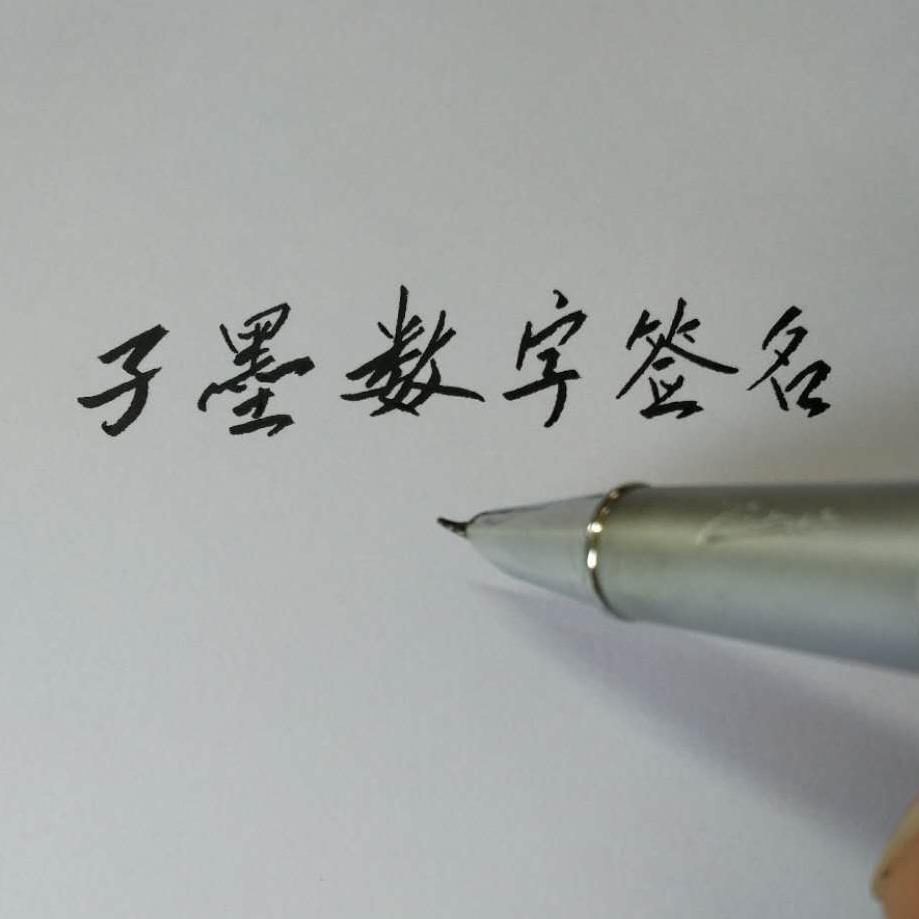 子墨数字签名